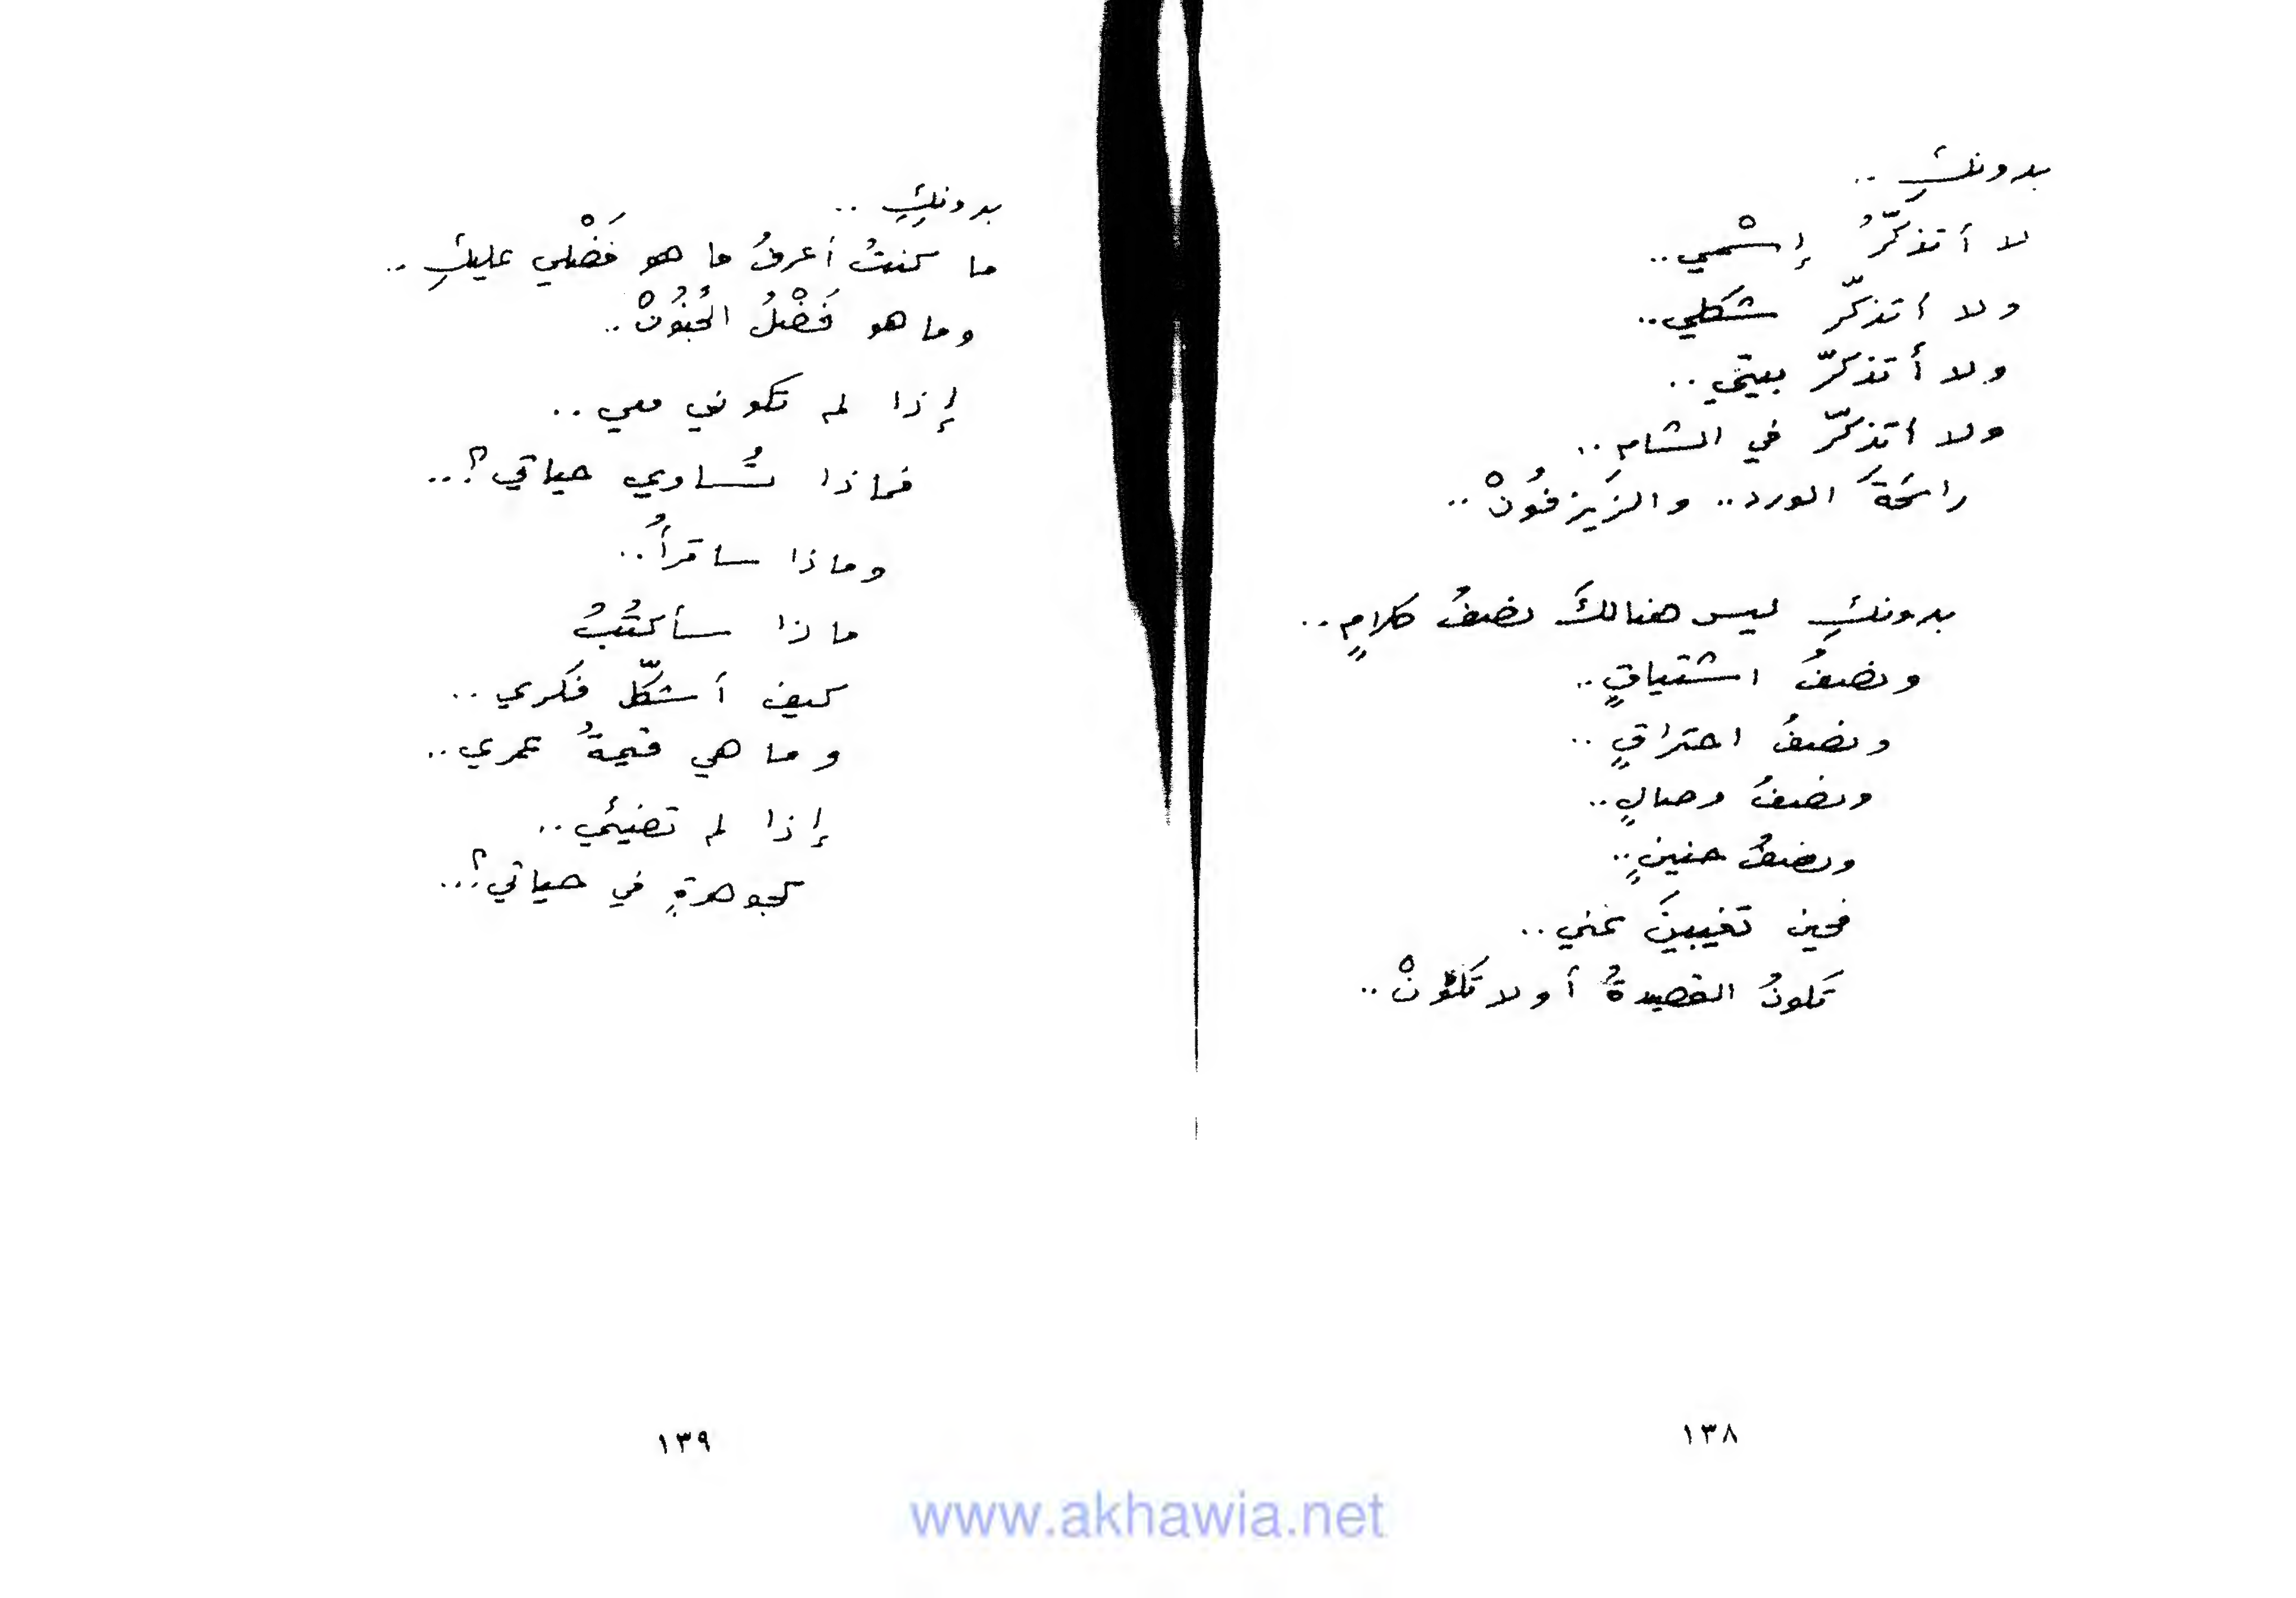 بدونكِ ..
لا أتذكّرُ إسْمي..
ولا أتذكّر شكلي..
ولا أتذكّر بيتي..
ولا أتذكّر في الشامِ..
رائحةَ الورد.. والزَيزفُونْ..
بدونكِ ليس هنالكَ نصفُ كلامٍ..
ونصفُ اشتياقٍ..
ونصفُ احتراقٍ..
ونصفُ وصالٍ..
ونصفُ حنينٍ..
فحين تغيبينَ عني..
تَكونُ القصيدةُ أو لا تَكُونْ..
١٣٨
بدونكِ ..
ما كنتُ أعرفُ ما هو فَضْلي عليكِ..
وما هو فَضْلُ الجُنُونْ..
إذا لم تكوني معي..
فماذا تُساوي حياتي؟..
وماذا سأقرأُ..
ماذا سأكتُبُ
كيف أشكّل فكري..
وما هي قيمةُ عمري..
إذا لم تضيئي..
كجوهرةٍ في حياتي؟..
١٣٩
www.akhawia.net